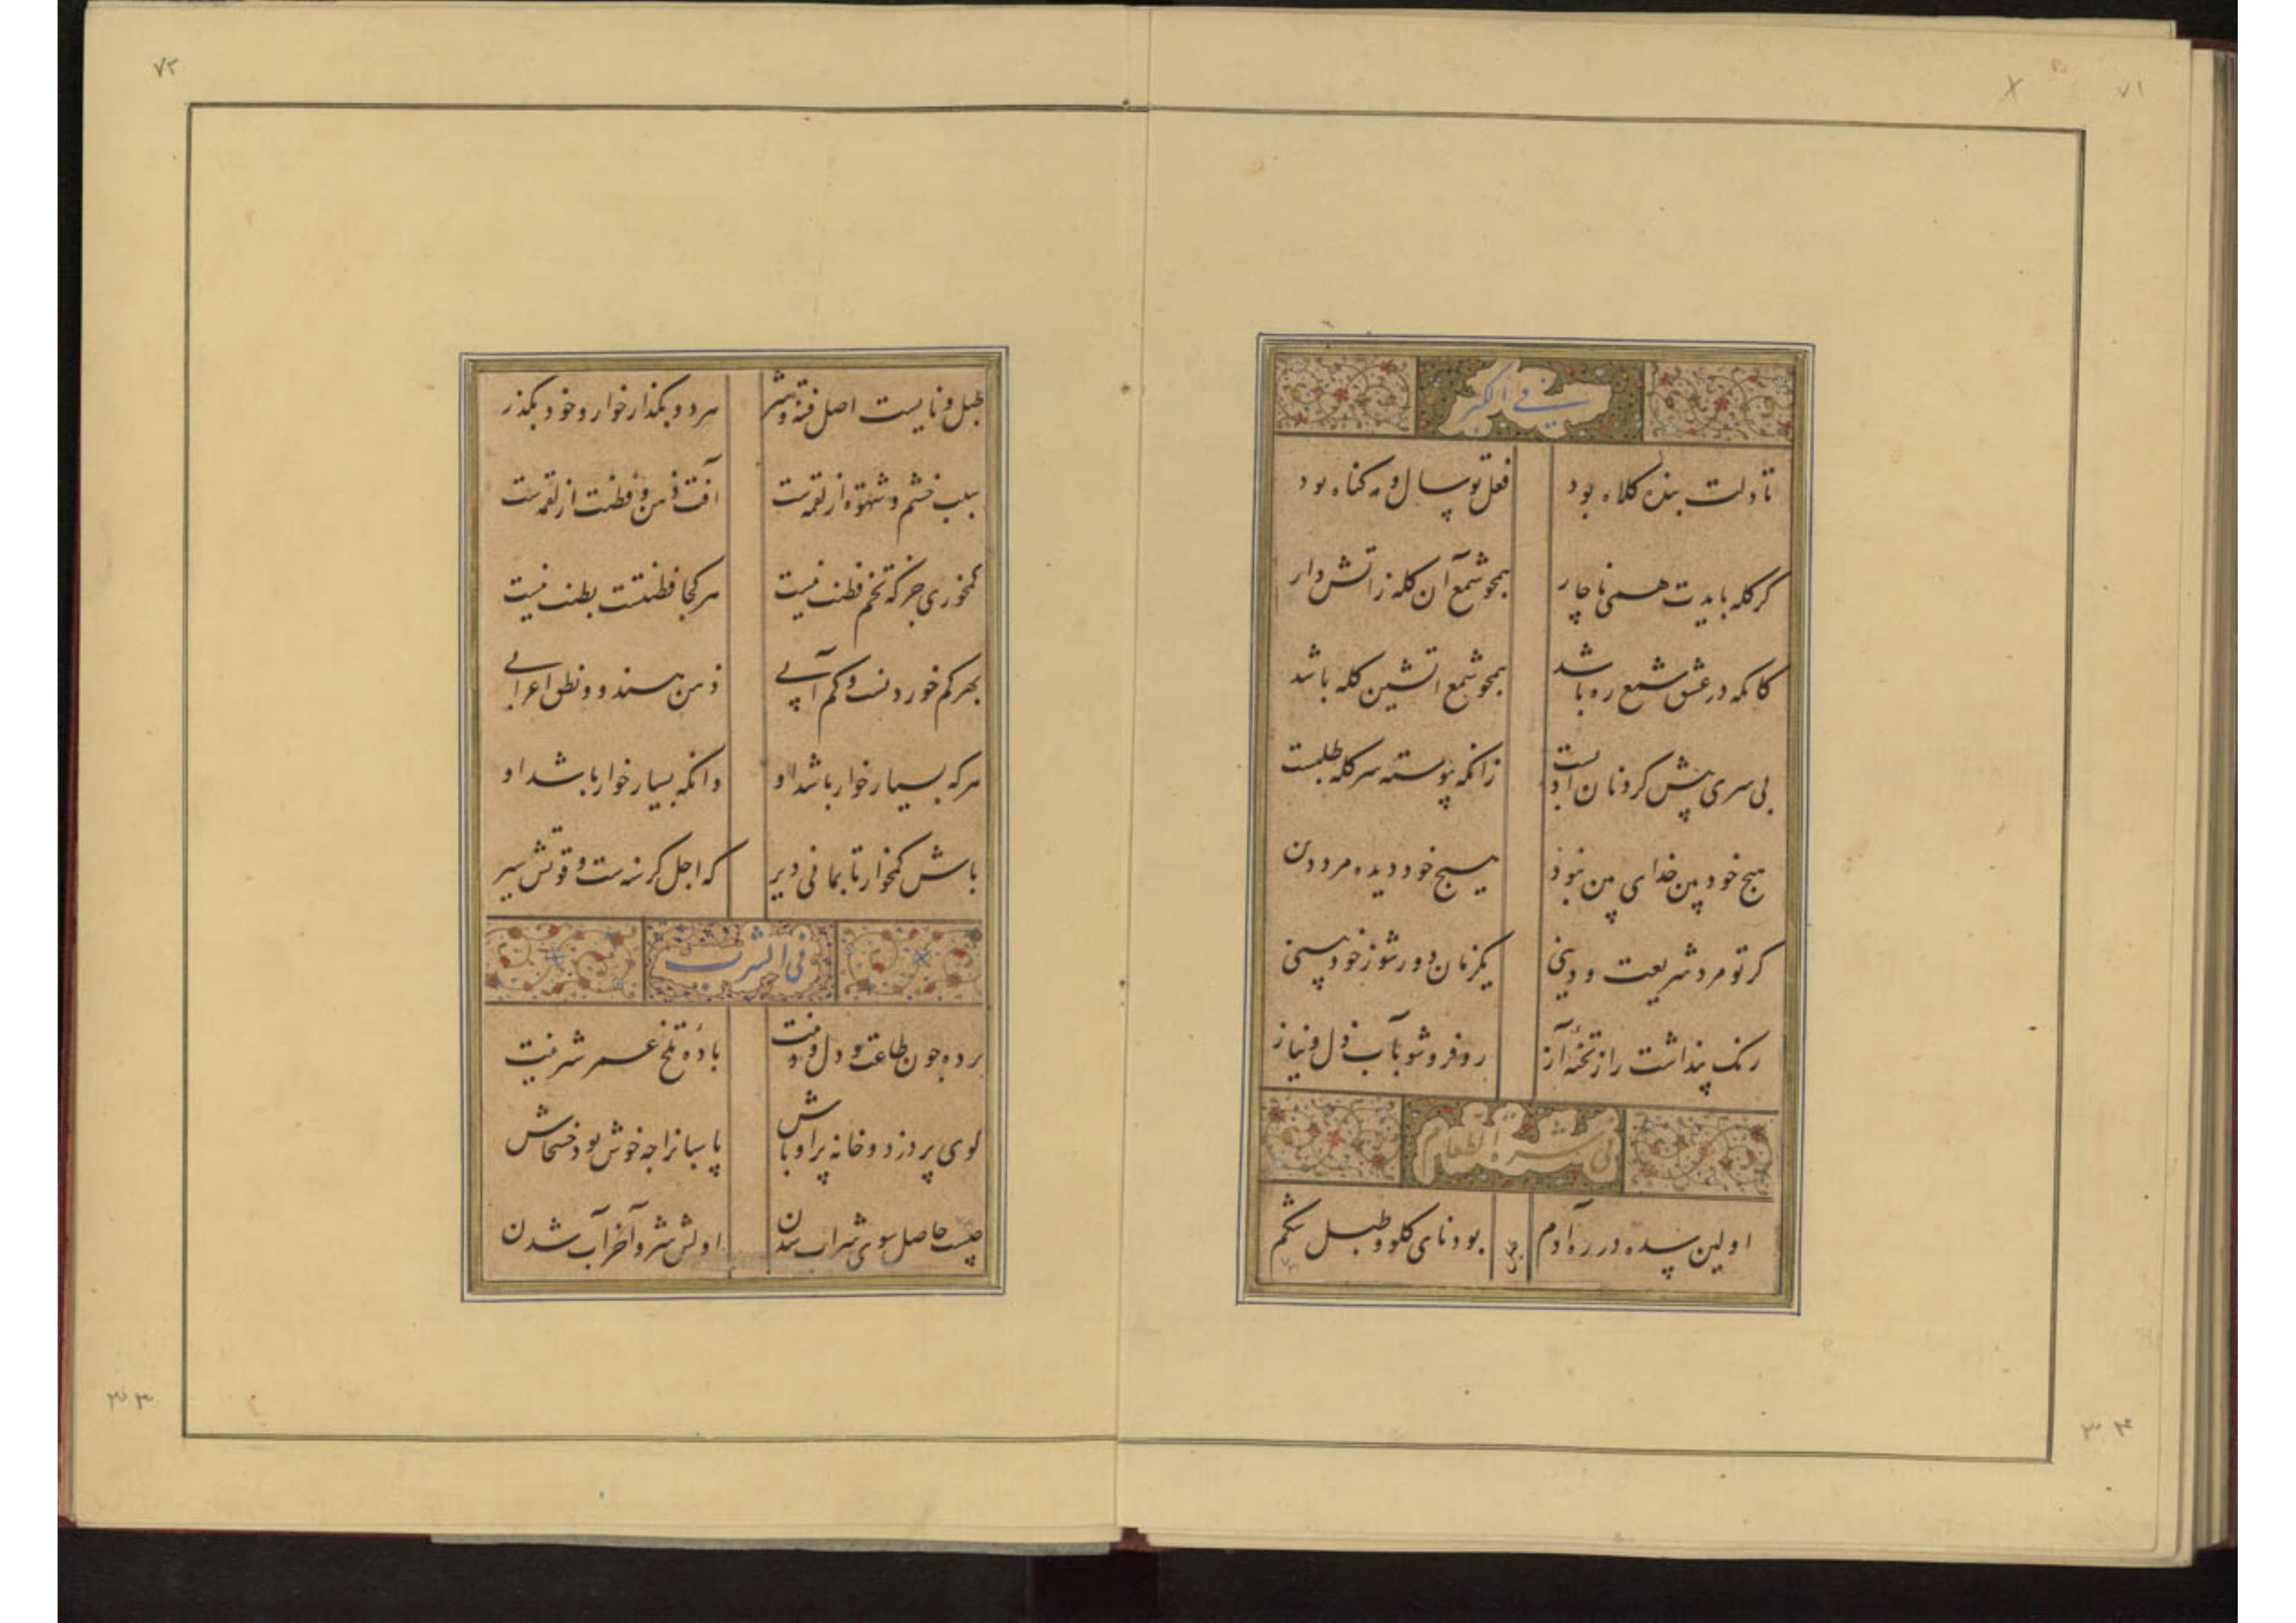 ۷۱
فی الکبر
تا دلت بنده کلاه بود فعل تو سال و مه کناه بود
کر کله بایدت همی ناچار همچو شمع آن کله ز اتش دار
کانکه در عشق شمع ره باشد همچو شمع اتشین کله باشد
بی سری پیش کردنان ادبست زانکه پیوسته سر کله طلبست
هیچ خود بین خدای بین نبود هیچ خود دیده مرد دین
کر تو مرد شریعت و دینی یکزمان دور شو ز خود بینی
رنک پنداشت را ز تخته آز رو فرو شو بآب ذل و نیاز
فی شره الطعام
اولین بنده در ره آدم بود نای کلو و طبل شکم
۳۴
۷۲
طبل و نایست اصل فتنه و شر هر دو بکذار خوار و خود بکذر
سبب خشم و شهوة از لقمه ست آفت ذهن و فطنت از لقمه ست
کمخوری جز که تخم فطنت نیست هر کجا فطنتست بطنت نیست
بهر کم خوردنست و کم آبی ذهن هند و و نطق اعرابی
هر که بسیار خوار باشد او دانکه بسیار خوار باشد او
باش کمخوار تا بمانی دیر که اجل کرسنه ست و قوتش سیر
فی الشرب
برده چون طاعت و دل و دینت باده تلخ عمر شیرینت
کوی پر دزد و خانه پر اوباش پاسبانرا چه خوش بود خشخاش
چیست حاصل سوی شراب شدن اولش شر و آخر آب شدن
۳۳